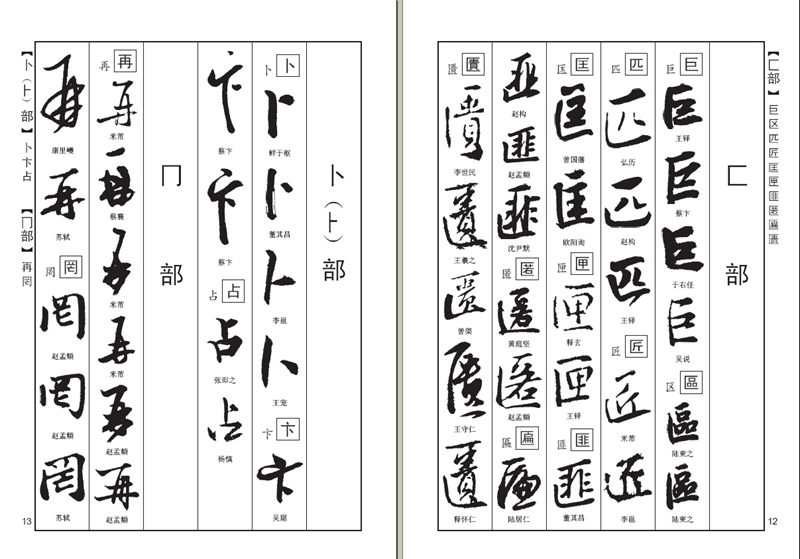 【匚部】 巨区匹匠匡匣匪匿匾匮
匚部
巨
王铎
蔡卞
于右任
吴说
区 區
陆柬之
陆柬之
匹 匹
弘历
赵构
王铎
匠 匠
米芾
李邕
匡 匡
曾国藩
欧阳询
匣 匣
释玄
王铎
匪 匪
董其昌
赵构
赵孟頫
沈尹默
匿 匿
黄庭坚
赵孟頫
匾 匾
陆居仁
匮 匱
李世民
王羲之
曾棨
王守仁
释怀仁
12
卜(⺊)部
卜 卜
鲜于枢
董其昌
李邕
王宠
卞 卞
吴琚
蔡卞
蔡卞
占 占
张即之
杨慎
冂部
再 再
米芾
蔡襄
米芾
米芾
赵孟頫
赵孟頫
康里巎
苏轼
罔 罔
赵孟頫
赵孟頫
苏轼
【卜(⺊)部】 卜卞占 【冂部】 再罔
13